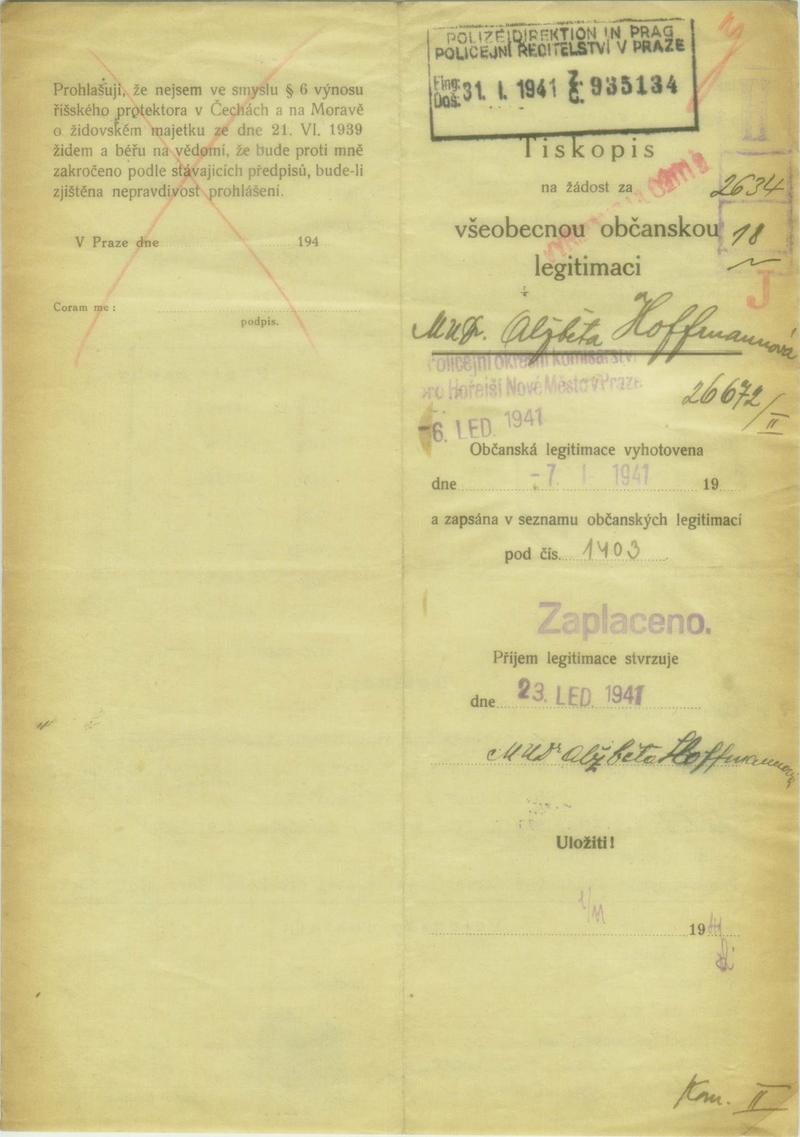 Prohlašuji, že nejsem ve smyslu § 6 výnosu
říšského protektora v Čechách a na Moravě
o židovském majetku ze dne 21. VI. 1939
židem a béřu na vědomí, že bude proti mně
zakročeno podle stávajících předpisů, bude-li
zjištěna nepravdivost prohlášení.
V Praze dne 194
Coram me :
podpis.
POLIZEIDIREKTION IN PRAG
POLICEJNÍ ŘEDITELSTVÍ V PRAZE
Eing.
Doš. 31. I. 1941 Z. Č. 935134
Tiskopis
na žádost za
2634
všeobecnou občanskou
18
legitimaci
J
MUDr. Alžběta Hoffmannová
Policejní okresní komisařství
pro Hořejší Nové Město v Praze
26672/II
-6. LED. 1941
Občanská legitimace vyhotovena
dne -7. I. 1941 19
a zapsána v seznamu občanských legitimací
pod čís. 1403
Zaplaceno.
Příjem legitimace stvrzuje
dne 23. LED. 1941
MUDr Alžběta Hoffmannová
Uložiti!
1941
Kom. II